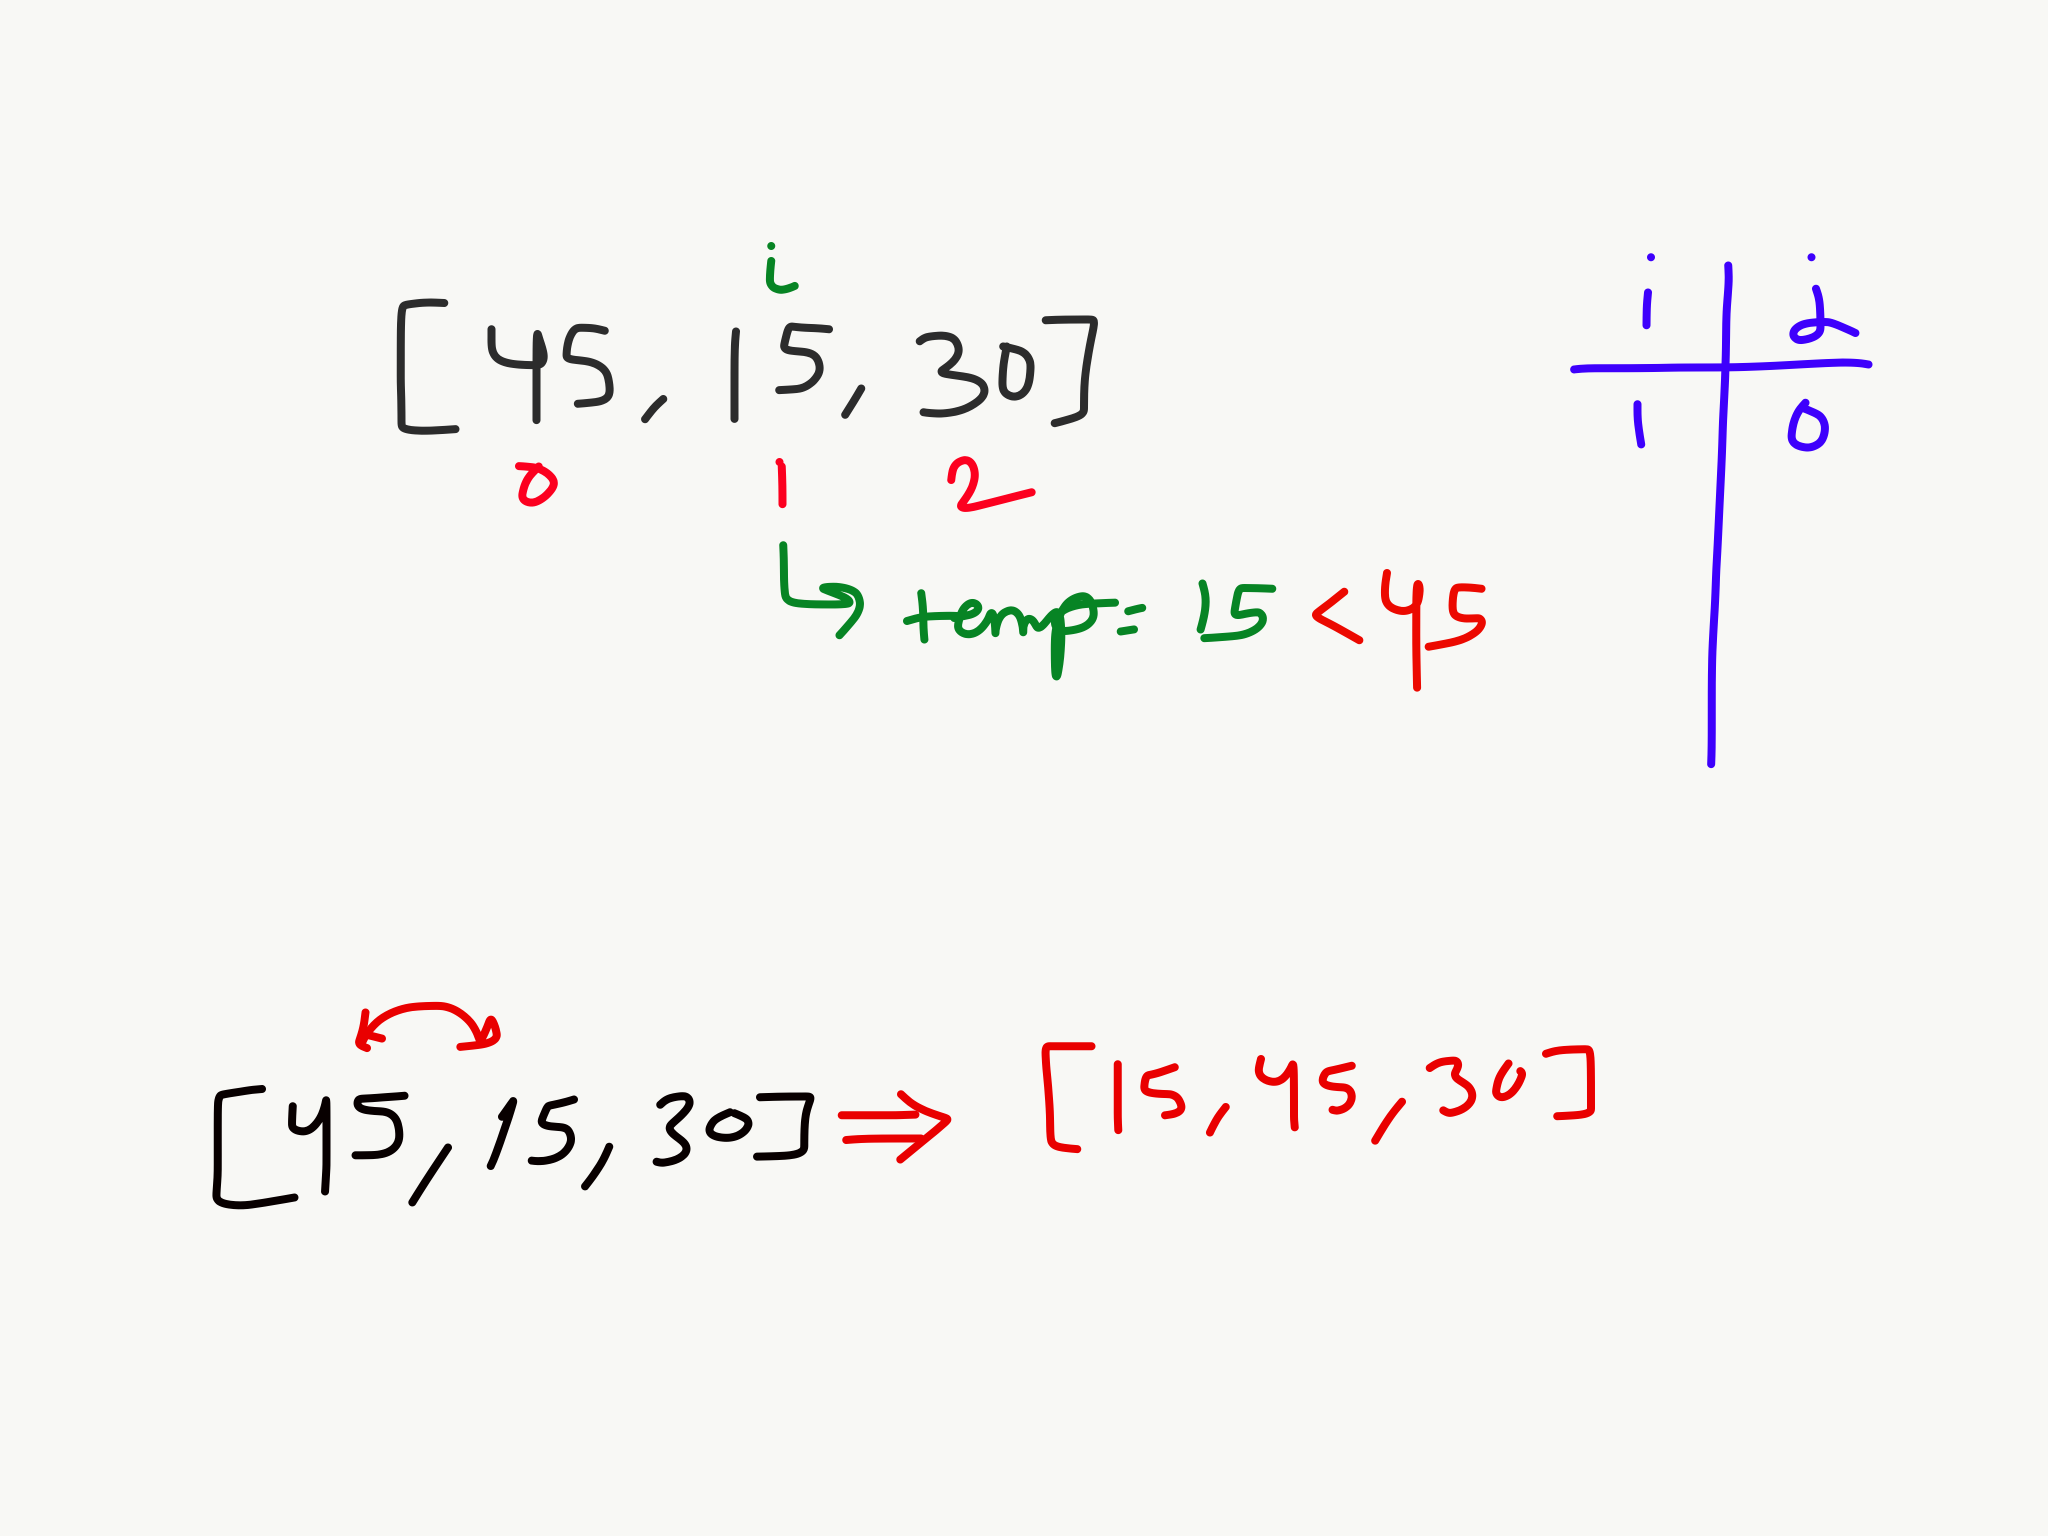 i
[45, 15, 30]
0 1 2
temp = 15 < 45
i j
1 0
[45, 15, 30] ⇒ [15, 45, 30]